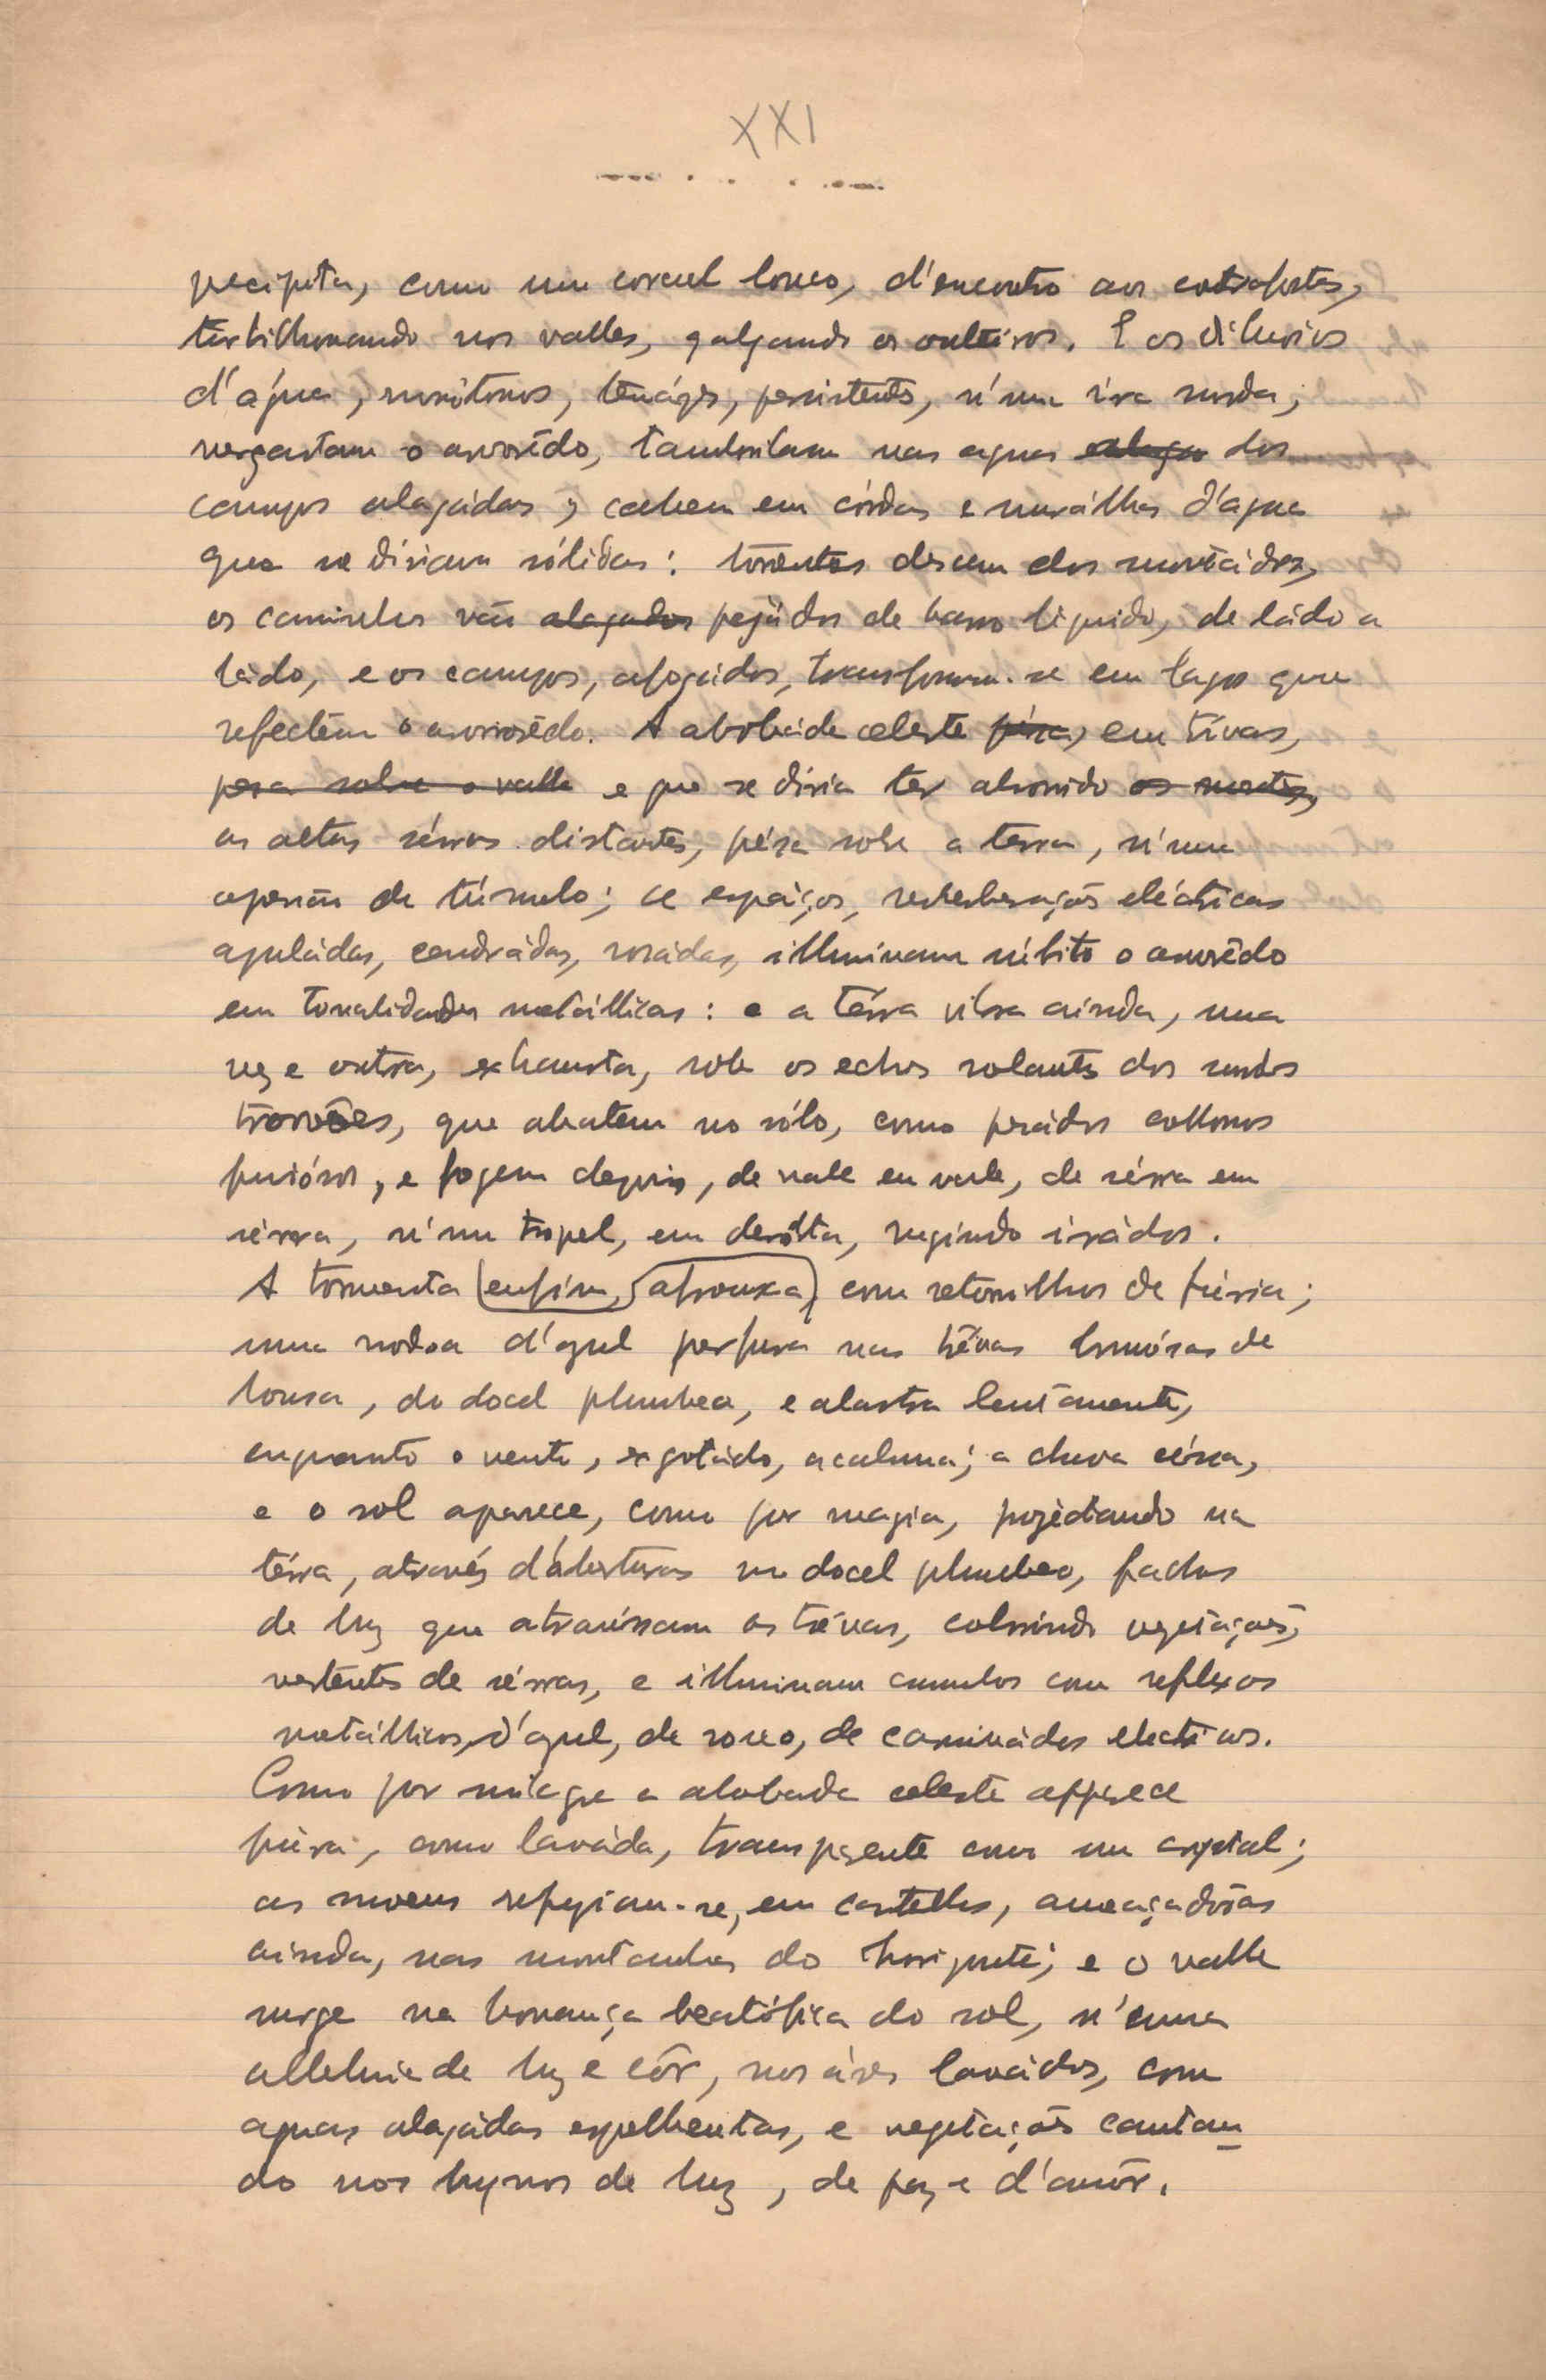 XXI
precipita, como um corcel louco, d'encontro aos cotrafortes,
turbilhonando nos valles, galgando os outeiros. E os diluvios
d'água, monótonos, tenázes, persistentes, n'uma ira surda,
vergastam o arvorêdo, tamborilam nas aguas alaga dos
campos alagádos; cahem em córdas e murálhas d'agua
que se diriam sólidas: torrentes descem dos montádos,
os caminhos vão alagados pejádos de barro liquido, de ládo a
ládo, e os campos, afogádos, transformam-se em lagos que
reflectem o arvorêdo. A abobáda celeste pésa, em trévas,
pesa sobre o valle e que se diria ter absorvido os montes,
as altas sérras distantes, pésa sobre a terra, n'uma
opersão de túmulo; a espáços, reverberações eléctricas
azuládas, cendrádas, rosádas, illuminam súbito o arvorêdo
em tonalidades metállicas: e a térra vibra ainda, uma
vez e outra, exhausta, sob os echos rolantes dos surdos
trovões, que abatem no sólo, como pesádos collossos
furiósos, e fogem depois, de vale em vale, de sérra em
sérra, n'um tropel, em derróta, rugindo irádos.
A tormenta enfim, afrouxa, com retornilhos de fúria;
uma nodoa d'azul perfura nas trévas brumósas de
lousa, do docel plumbeo, e alastra lentamente,
enquanto o vento, exgotádo, acalma; a chuva céssa,
e o sol aparece, como por magia, projéctando na
térra, através d'aberturas no docel plumbeo, fachos
de luz que atravéssam as trévas, colorindo vegetações,
vertentes de sérras, e illuminam cumulos com reflexos
metállicos, d'azul, de roxo, de carminádos electricos.
Como por milagre a abobada celeste apparece
púra, como laváda, transparente como um crystal;
as nuvens refugiam-se, em castellos, ameaçadôras
ainda, nas montanhas do horizonte; e o valle
surge na bonança beatífica do sol, n'uma
alleluia de luz e côr, nos áres lavádos, com
aguas alagádas espelhentas, e vegetações cantan
do nos hymnos de luz, de paz e d'amôr.